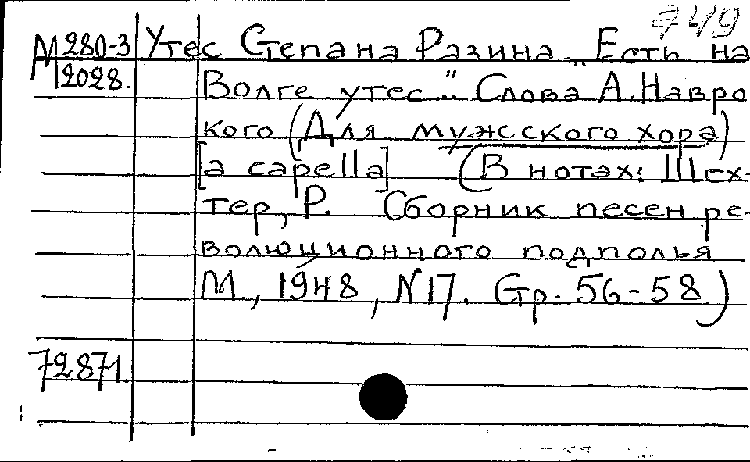 749
М 280-3 Утес Степана Разина „Есть на
12028. Волге утес" Слова А.Навро
кого (Для мужского хора)
[a capella] (В нотах: Шех-
тер, Р. Сборник песен ре-
волюционного подполья
М, 1948, N17. Стр. 56-58)
72871.